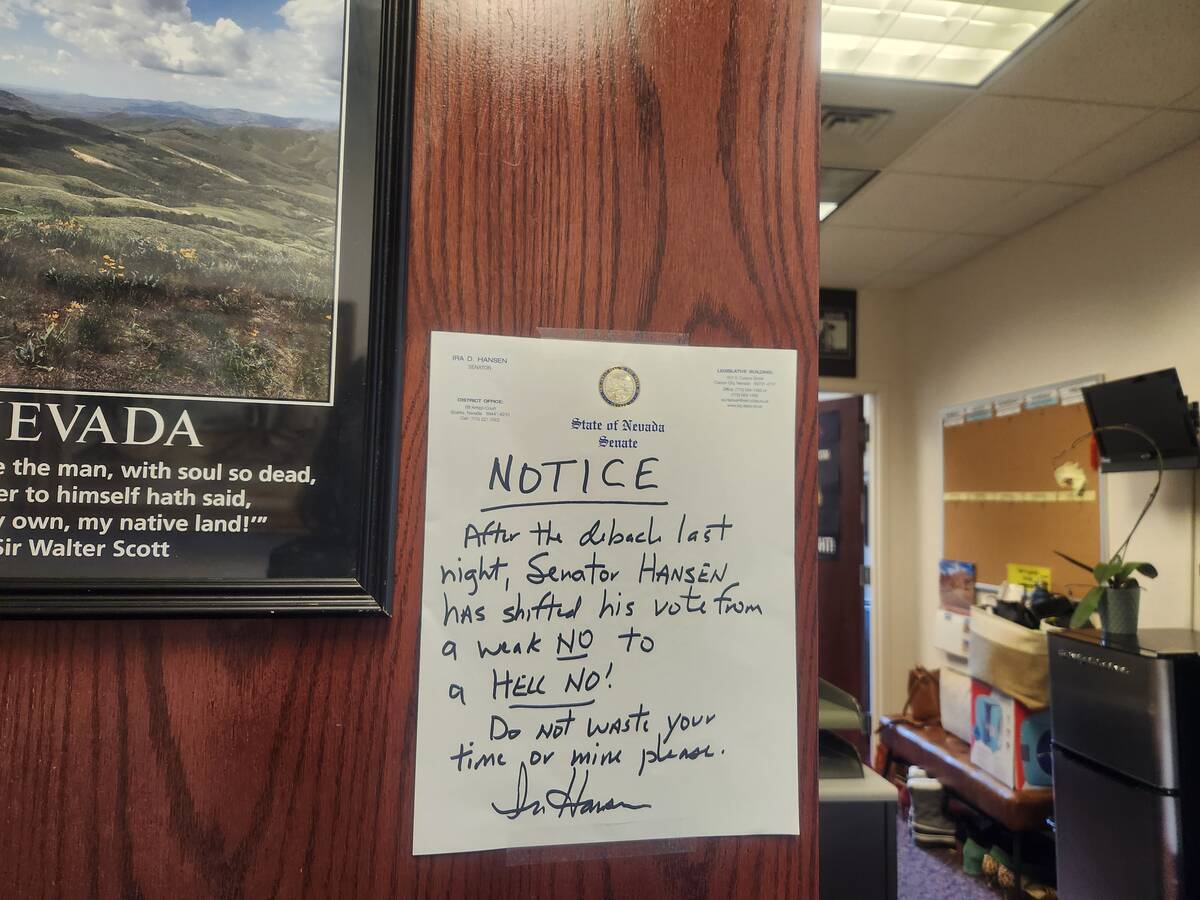 NEVADA
e the man, with soul so dead,
er to himself hath said,
y own, my native land!'"
Sir Walter Scott
IRA D. HANSEN
SENATOR
DISTRICT OFFICE:
LEGISLATIVE BUILDING:
State of Nevada
Senate
NOTICE
After the debach last
night, Senator HANSEN
has shifted his vote from
a weak NO to
a HELL NO!
Do NOT WASTE your
time or mine please.
Ira Hansen